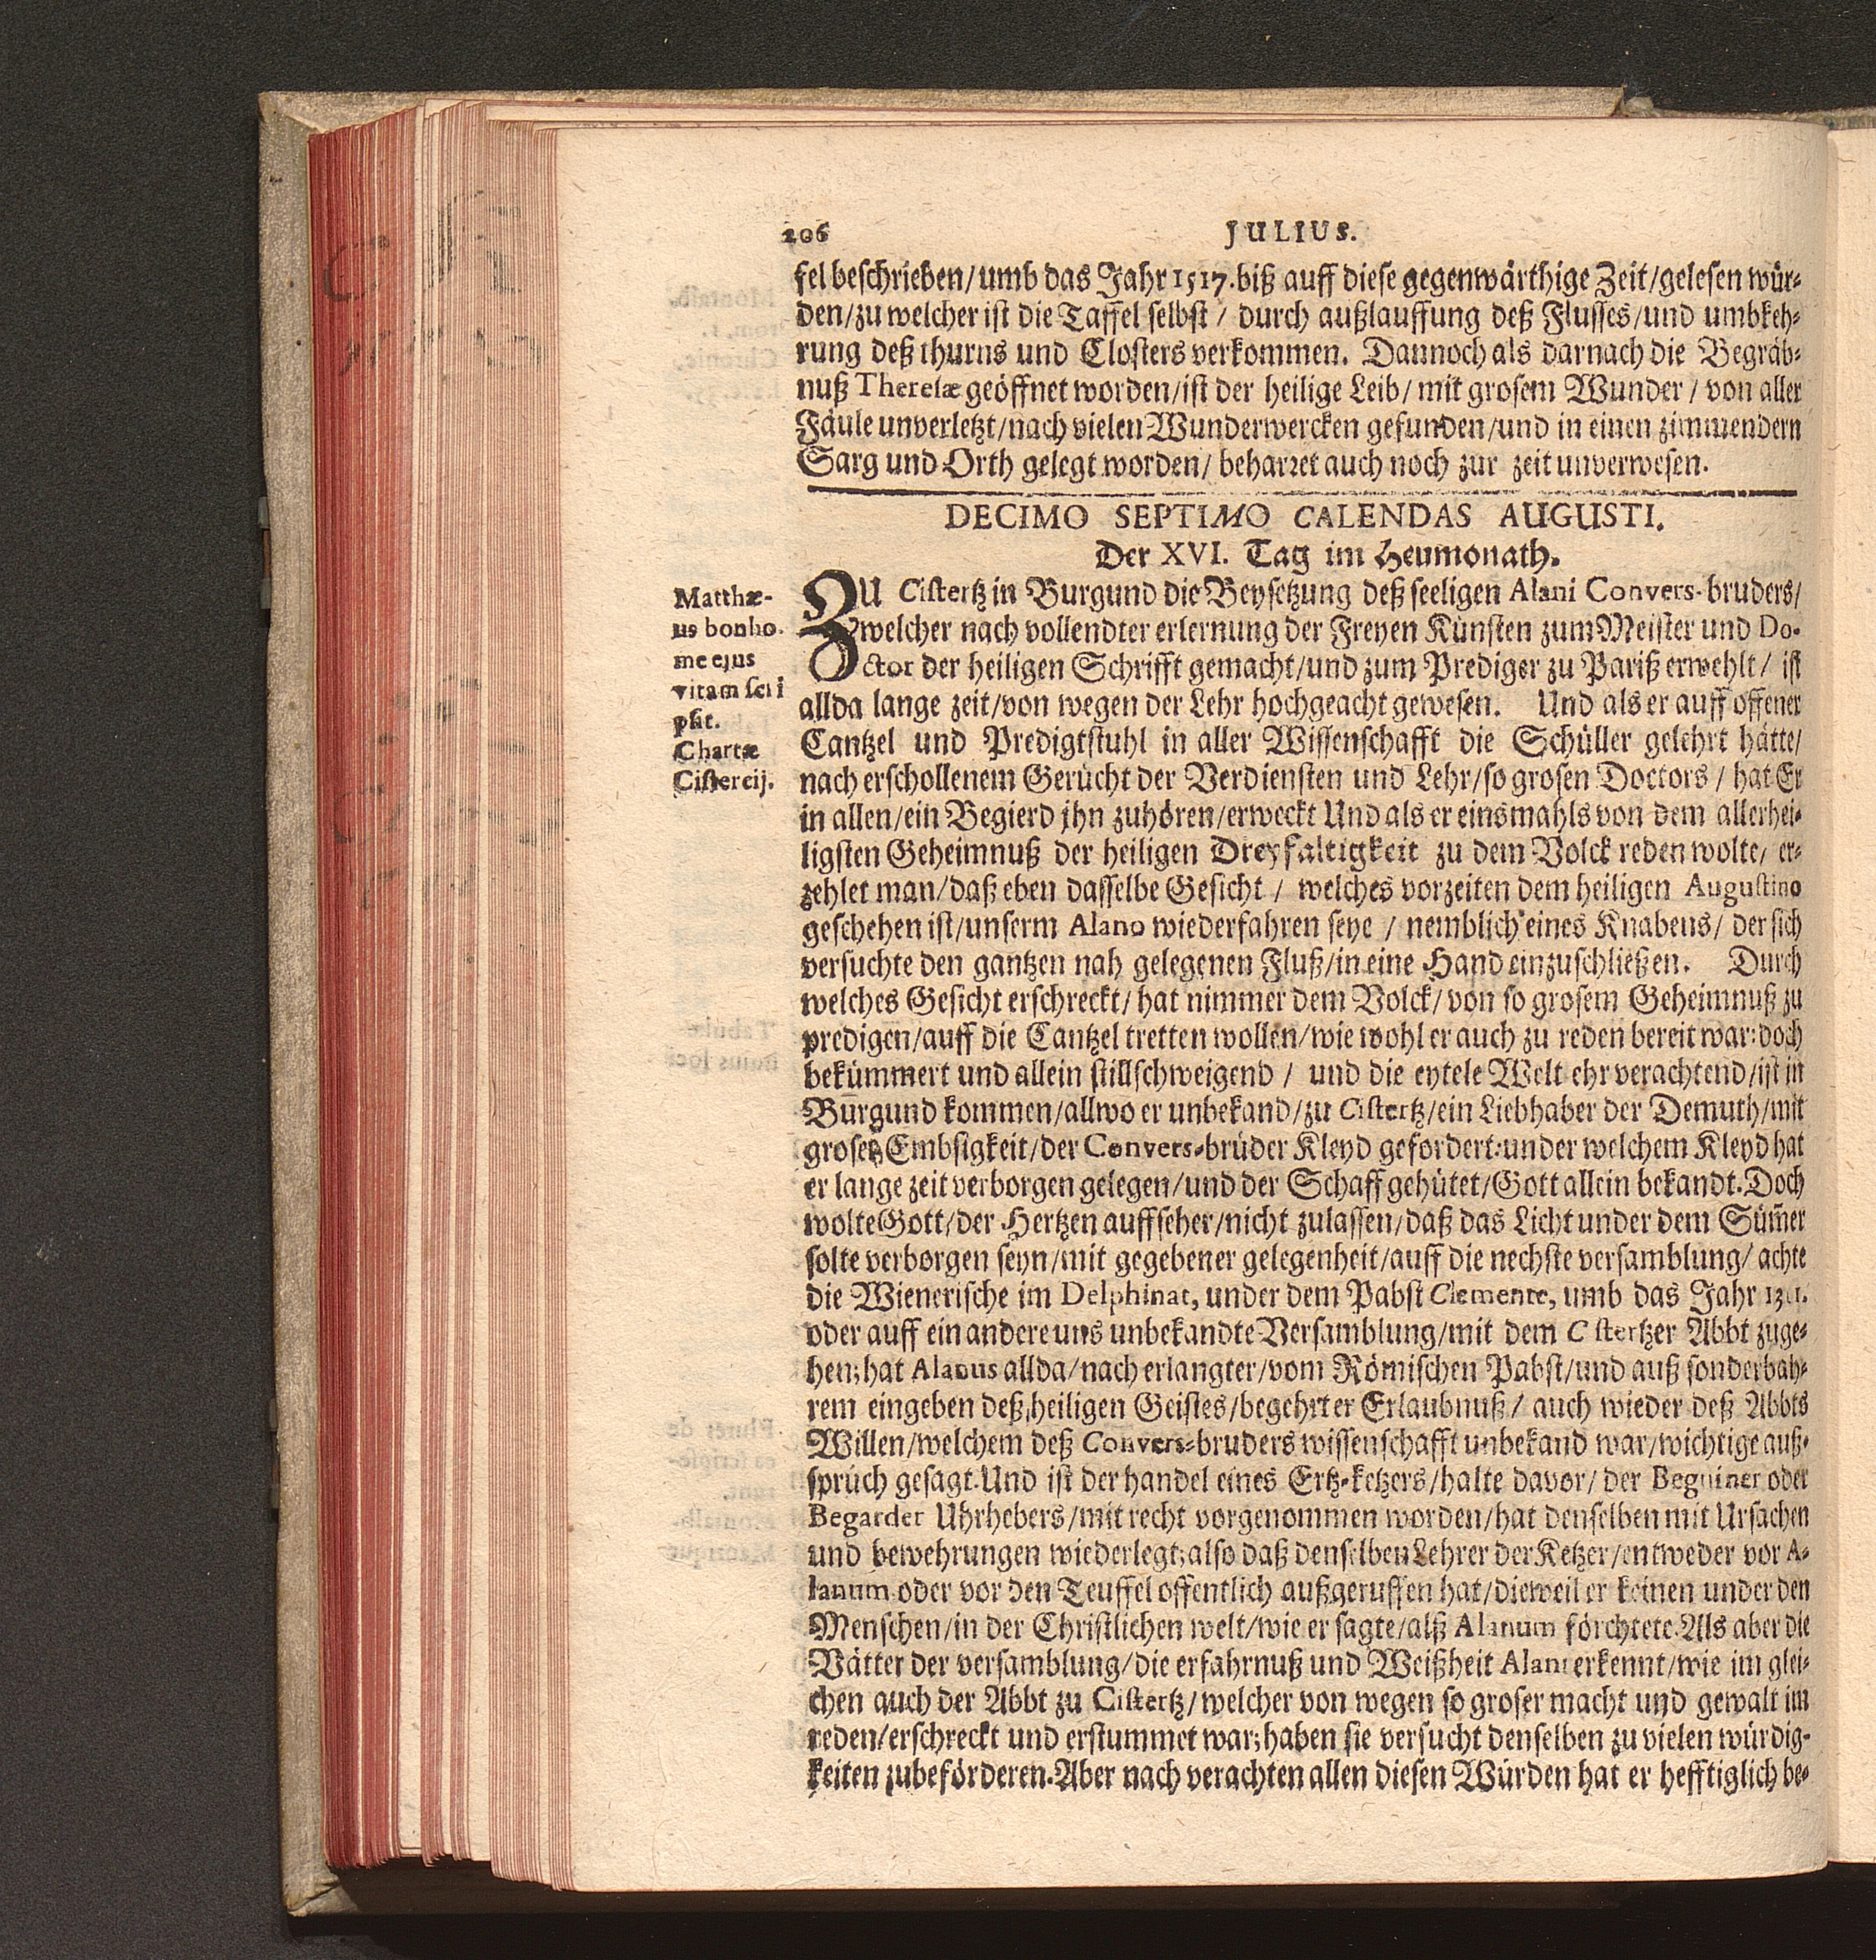 206 JULIUS.
fel beschrieben/umb das Jahr 1517. biß auff diese gegenwärthige Zeit/gelesen wür-
den/zu welcher ist die Taffel selbst / durch außlauffung deß Flusses/und umbkeh-
rung deß thurns und Closters verkommen. Dannoch als darnach die Begräb-
nuß Theresæ geöffnet worden/ist der heilige Leib/ mit grosem Wunder / von aller
Fäule unverletzt/nach vielen Wunderwercken gefunden/und in einen zimmendern
Sarg und Orth gelegt worden/ beharret auch noch zur zeit unverwesen.
DECIMO SEPTIMO CALENDAS AUGUSTI.
Der XVI. Tag im Heumonath.
Matthæ-
us bonho-
me ejus
vitam scri
psit.
Chartæ
Cistercij.
ZU Cistertz in Burgund die Beysetzung deß seeligen Alani Convers-bruders/
welcher nach vollendter erlernung der Freyen Künsten zum Meister und Do-
ctor der heiligen Schrifft gemacht/und zum Prediger zu Pariß erwehlt / ist
allda lange zeit/von wegen der Lehr hochgeacht gewesen. Und als er auff offener
Cantzel und Predigtstuhl in aller Wissenschafft die Schüller gelehrt hätte/
nach erschollenem Gerücht der Verdiensten und Lehr/so grosen Doctors / hat Er
in allen/ein Begierd jhn zuhören/erweckt Und als er einsmahls von dem allerhei-
ligsten Geheimnuß der heiligen Dreyfaltigkeit zu dem Volck reden wolte/ er-
zehlet man/daß eben dasselbe Gesicht / welches vorzeiten dem heiligen Augustino
geschehen ist/unserm Alano wiederfahren seye / nemblich eines Knabens/ der sich
versuchte den gantzen nah gelegenen Fluß/in eine Hand einzuschließen. Durch
welches Gesicht erschreckt/ hat nimmer dem Volck/von so grosem Geheimnuß zu
predigen/auff die Cantzel tretten wollen/wie wohl er auch zu reden bereit war: doch
bekümmert und allein stillschweigend / und die eytele Welt ehr verachtend/ist in
Burgund kommen/allwo er unbekand/zu Cistertz/ein Liebhaber der Demuth/mit
groser Embsigkeit/der Convers-brüder Kleyd gefordert: under welchem Kleyd hat
er lange zeit verborgen gelegen/und der Schaff gehütet/Gott allein bekandt. Doch
wolte Gott/der Hertzen auffseher/nicht zulassen/daß das Licht under dem Süm̄er
solte verborgen seyn/mit gegebener gelegenheit/auff die nechste versamblung/ achte
die Wienerische im Delphinat, under dem Pabst Clemente, umb das Jahr 1311.
oder auff ein andere uns unbekandte Versamblung/mit dem C stertzer Abbt zuge-
hen; hat Alanus allda/nach erlangter/vom Römischen Pabst/und auß sonderbah-
rem eingeben deß heiligen Geistes/begehrter Erlaubnuß / auch wieder deß Abbts
Willen/welchem deß Convers-bruders wissenschafft unbekand war/wichtige auß-
sprüch gesagt. Und ist der handel eines Ertz-ketzers/halte davor/ der Beguiner oder
Begarder Uhrhebers/mit recht vorgenommen worden/hat denselben mit Ursachen
und bewehrungen wiederlegt; also daß denselben Lehrer der Ketzer/entweder vor A-
lanum oder vor den Teuffel offentlich außgeruffen hat/dieweil er keinen under den
Menschen/in der Christlichen welt/wie er sagte/alß Alanum förchtete. Als aber die
Vätter der versamblung/die erfahrnuß und Weißheit Alani erkennt/wie im glei-
chen auch der Abbt zu Cistertz/welcher von wegen so groser macht und gewalt im
reden/erschreckt und erstummet war; haben sie versucht denselben zu vielen würdig-
keiten zubeförderen. Aber nach verachten allen diesen Würden hat er hefftiglich be-